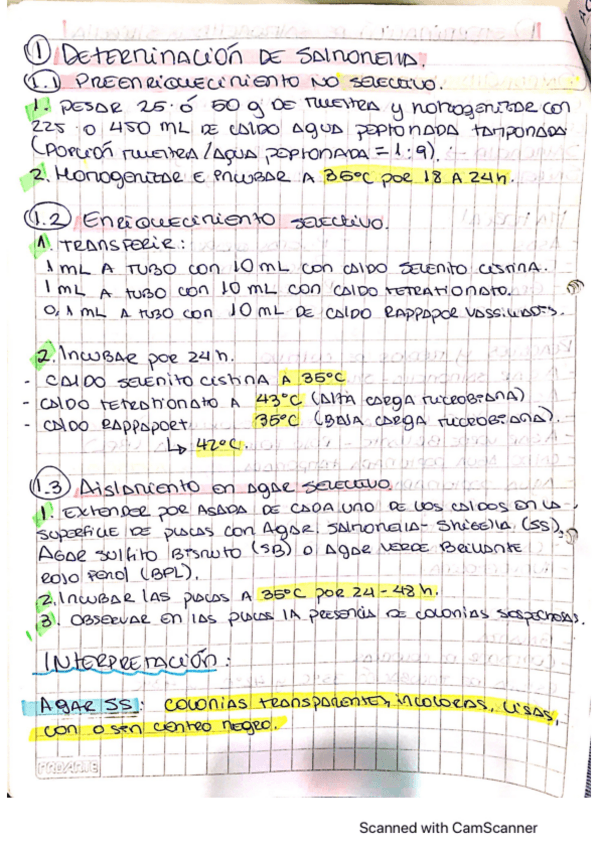 ① DETERMINACIÓN DE SALMONELLA.
1.1 PREENRIQUECIMIENTO NO SELECTIVO.
1. PESAR 25 Ó 50 g DE MUESTRA y HOMOGENIZAR CON
225 O 450 ML DE CALDO AGUA PEPTONADA TAMPONADA
(PORCIÓN MUESTRA/AGUA PEPTONADA = 1:9).
2. HOMOGENIZAR E INCUBAR A 35°C POR 18 A 24h.
1.2 ENRIQUECIMIENTO SELECTIVO.
1. TRANSFERIR:
1 ML A TUBO CON 10 ML CON CALDO SELENITO CISTINA.
1 ML A TUBO CON 10 ML CON CALDO TETRATIONATO.
0,1 ML A TUBO CON 10 ML DE CALDO RAPPAPOR VASSILIADIS.
2. INCUBAR POR 24 h.
- CALDO SELENITO CISTINA A 35°C
- CALDO TETRATIONATO A 43°C (ALTA CARGA MICROBIANA)
- CALDO RAPPAPORT 35°C (BAJA CARGA MICROBIANA).
↳ 42°C.
1.3 AISLAMIENTO EN AGAR SELECTIVO
1. EXTENDER POR ASADA DE CADA UNO DE LOS CALDOS EN LA
SUPERFICIE DE PLACAS CON AGAR SALMONELLA-SHIGELLA (SS),
AGAR SULFITO BISMUTO (SB) O AGAR VERDE BRILLANTE
ROJO FENOL (BPL).
2. INCUBAR LAS PLACAS A 35°C POR 24-48 h.
3. OBSERVAR EN LAS PLACAS LA PRESENCIA DE COLONIAS SOSPECHOSAS.
INTERPRETACIÓN:
AGAR SS: COLONIAS TRANSPARENTES, INCOLORAS, LISAS,
CON O SIN CENTRO NEGRO.
PROARTE
Scanned with CamScanner